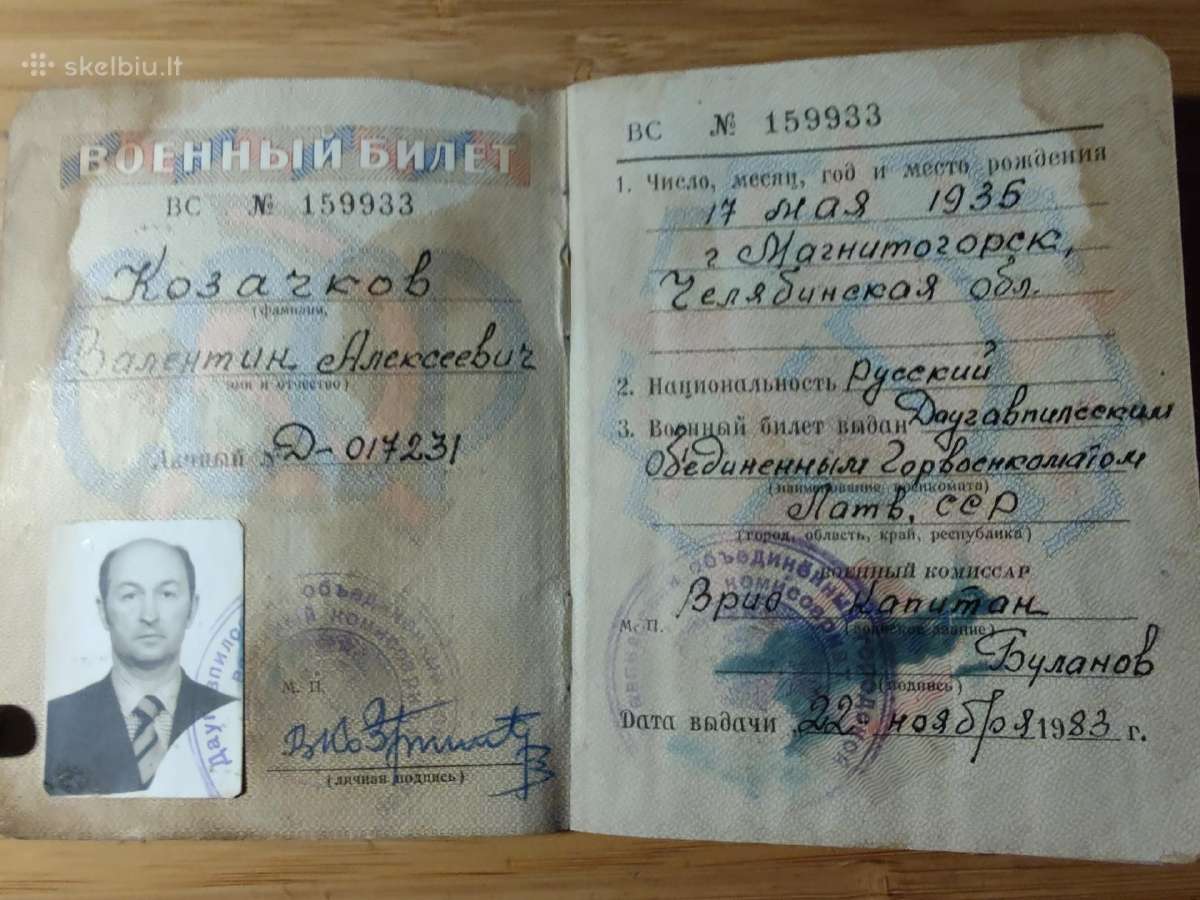 skelbiu.lt
ВОЕННЫЙ БИЛЕТ
ВС № 159933
Козачков
(фамилия)
Валентин Алексеевич
(имя и отчество)
Личный № Д-017231
объединен
М. П.
(личная подпись)
ВС № 159933
1. Число, месяц, год и место рождения
17 мая 1936
г Магнитогорск,
Челябинская обл.
2. Национальность Русский
3. Военный билет выдан Даугавпилсским
Объединенным Горвоенкоматом
(наименование военкомата)
Латв, ССР
(город, область, край, республика)
ВОЕННЫЙ КОМИССАР
Врид Капитан
М. П. (воинское звание)
Буланов
(подпись)
Дата выдачи 22 ноября 1983 г.